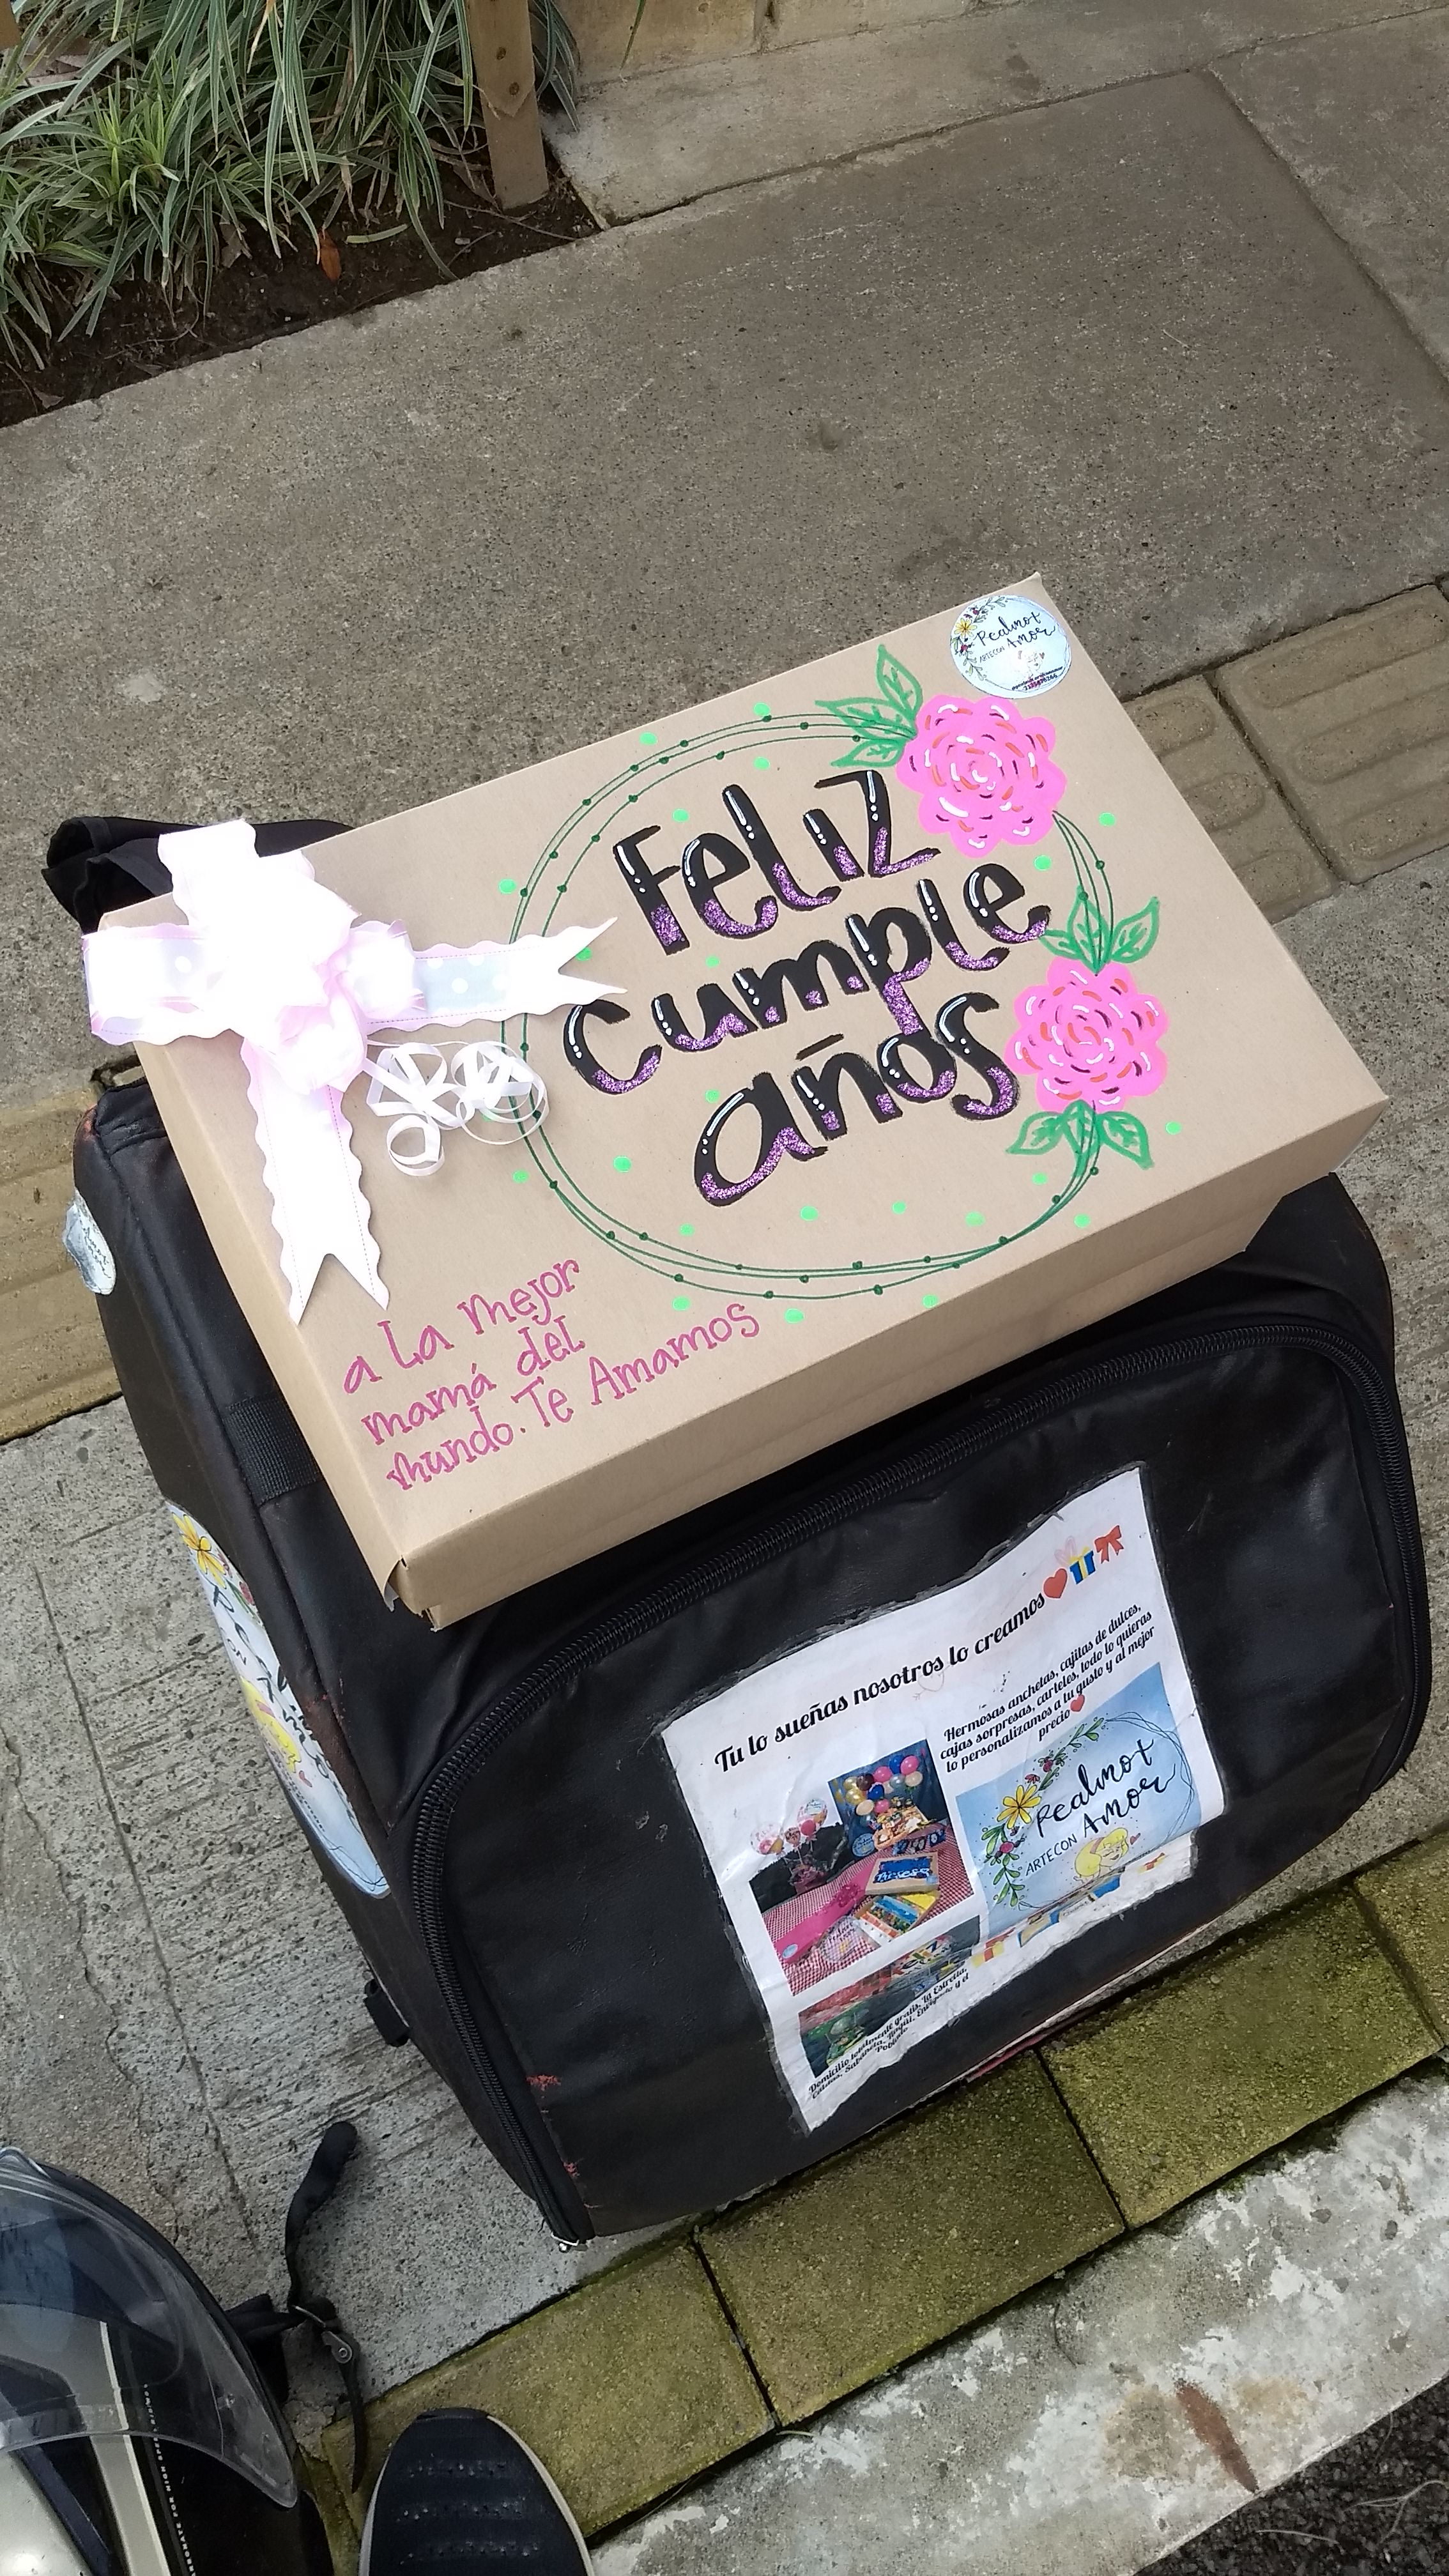 Realmot
ARTE CON Amor
Feliz
cumple
años
a La mejor
mamá del
mundo. Te Amamos
Tu lo sueñas nosotros lo creamos
Hermosas anchetas, cajitas de dulces,
cajas sorpresas, carteles, todo lo quieras
lo personalizamos a tu gusto y al mejor
precio
Realmot
ARTE CON Amor
Domicilio totalmente gratis, la Estrella,
Caldas, Sabaneta, Itagüí, Envigado y el
Poblado